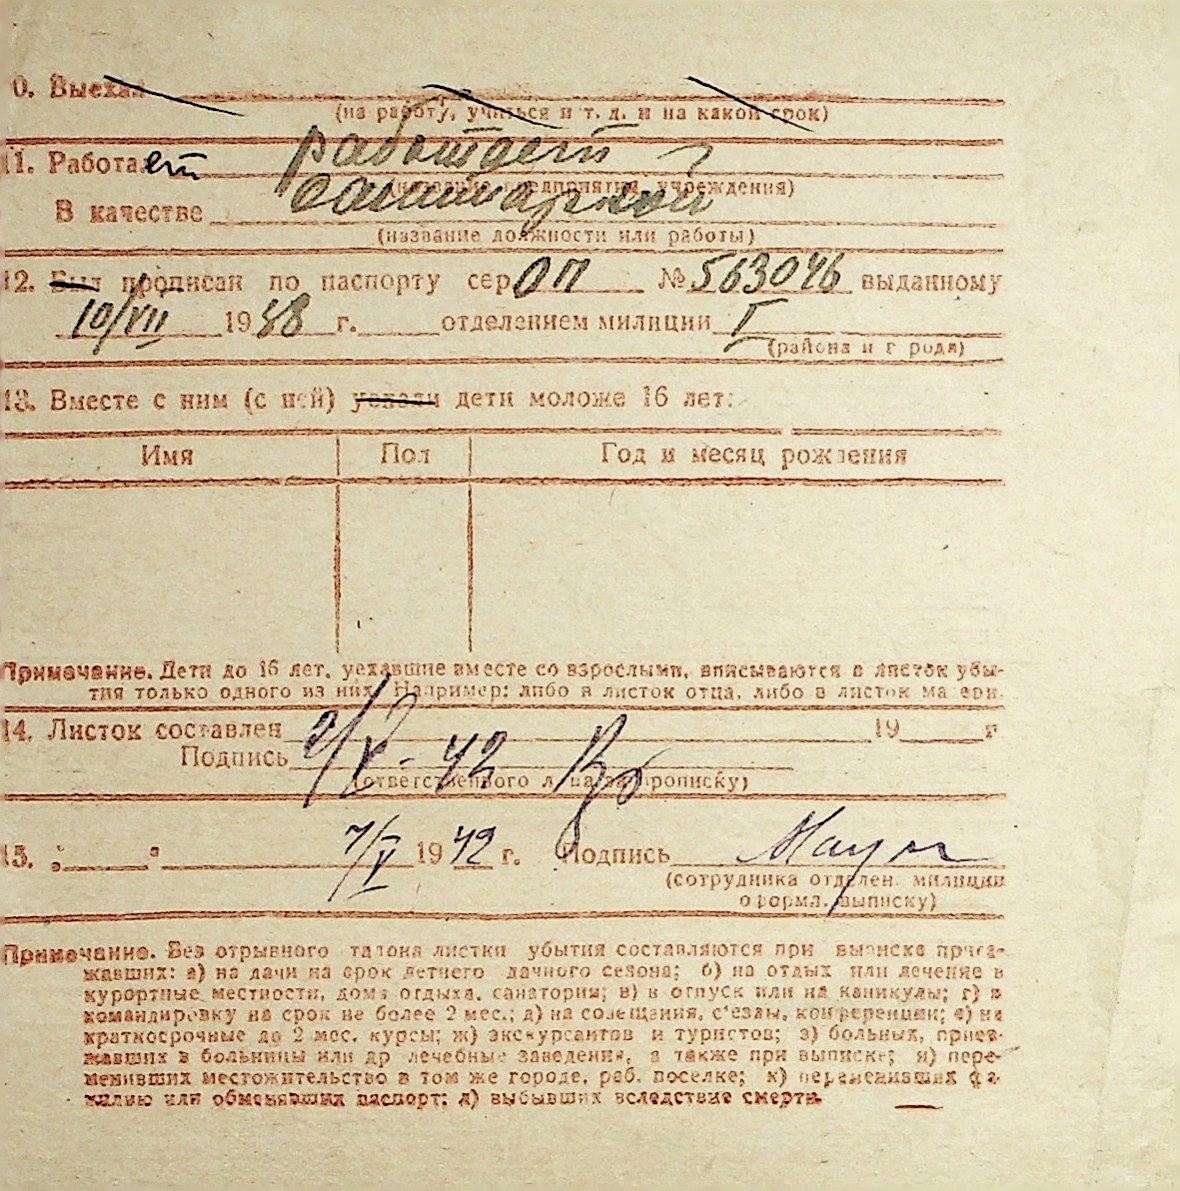 0. Выехал
(на работу, учиться и т. д. и на какой срок)
11. Работает работает
(название предприятия, учреждения)
В качестве санитаркой
(название должности или работы)
12. Был прописан по паспорту сер ОП № 563046 выданному
10/VII 1938 г. отделением милиции I
(района и г рода)
13. Вместе с ним (с ней) уехали дети моложе 16 лет:
Имя Пол Год и месяц рождения
Примечание. Дети до 16 лет, уехавшие вместе со взрослыми, вписываются в листок убы-
тия только одного из них. Например: либо в листок отца, либо в листок ма ери.
14. Листок составлен 19 г
Подпись 2/V - 42
(ответственного л ца за прописку)
15. " " 7/V 1942 г. Подпись
(сотрудника отделен. милиции
оформл. выписку)
Примечание. Без отрывного талона листки убытия составляются при выписке приез-
жавших: а) на дачи на срок летнего дачного сезона; б) на отдых или лечение в
курортные местности, дома отдыха, санатории; в) в отпуск или на каникулы; г) в
командировку на срок не более 2 мес.; д) на совещания, с'езды, конференции; е) на
краткосрочные до 2 мес. курсы; ж) экскурсантов и туристов; з) больных, приез-
жавших в больницы или др лечебные заведения, а также при выписке; и) пере-
менивших местожительство в том же городе, раб. поселке; к) переменивших фа-
милию или обменявших паспорт; л) выбывших вследствие смерти.